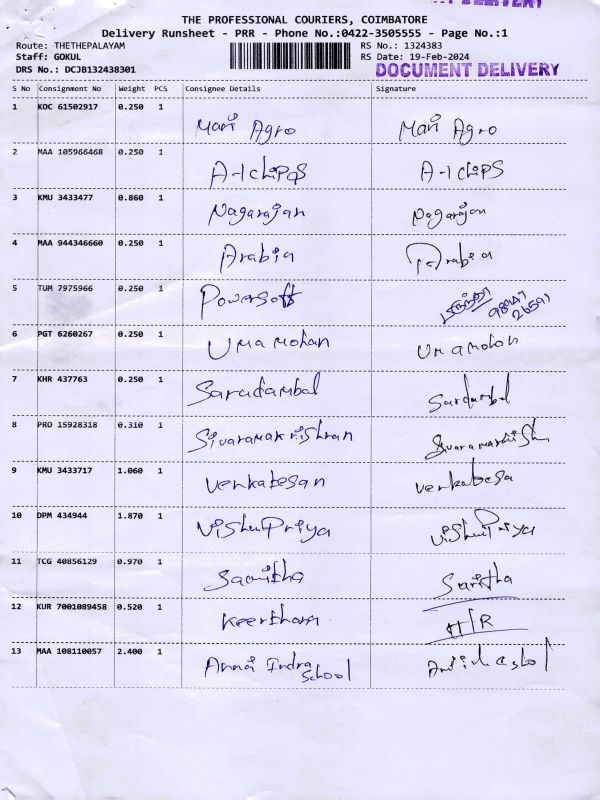 DOCUMENT DELIVERY
THE PROFESSIONAL COURIERS, COIMBATORE
Delivery Runsheet - PRR - Phone No.:0422-3505555 - Page No.:1
Route: THETHEPALAYAM RS No.: 1324383
Staff: GOKUL RS Date: 19-Feb-2024
DRS No.: DCJB132438301 DOCUMENT DELIVERY
S No Consignment No Weight PCS Consignee Details Signature
1 KOC 61502917 0.250 1
Mari Agro Mari Agro
2 MAA 105966468 0.250 1
A-1 chips A-1 chips
3 KMU 3433477 0.860 1
Nagarajan Nagarajan
4 MAA 944346660 0.250 1
Arabia Arabia
5 TUM 7975966 0.250 1
Powersoft 98947
26591
6 PGT 6260267 0.250 1
Uma Mohan Uma Mohan
7 KHR 437763 0.250 1
Sarudambal Sardambal
8 PRO 15928318 0.310 1
Sivaramakrishnan Sivaramakrish
9 KMU 3433717 1.060 1
Venkatesan Venkatesa
10 DPM 434944 1.870 1
Vishu Priya Vishu Priya
11 TCG 40856129 0.970 1
Saritha Saritha
12 KUR 7001089458 0.520 1
Keerthana
13 MAA 108110057 2.400 1
Anna Indra
School